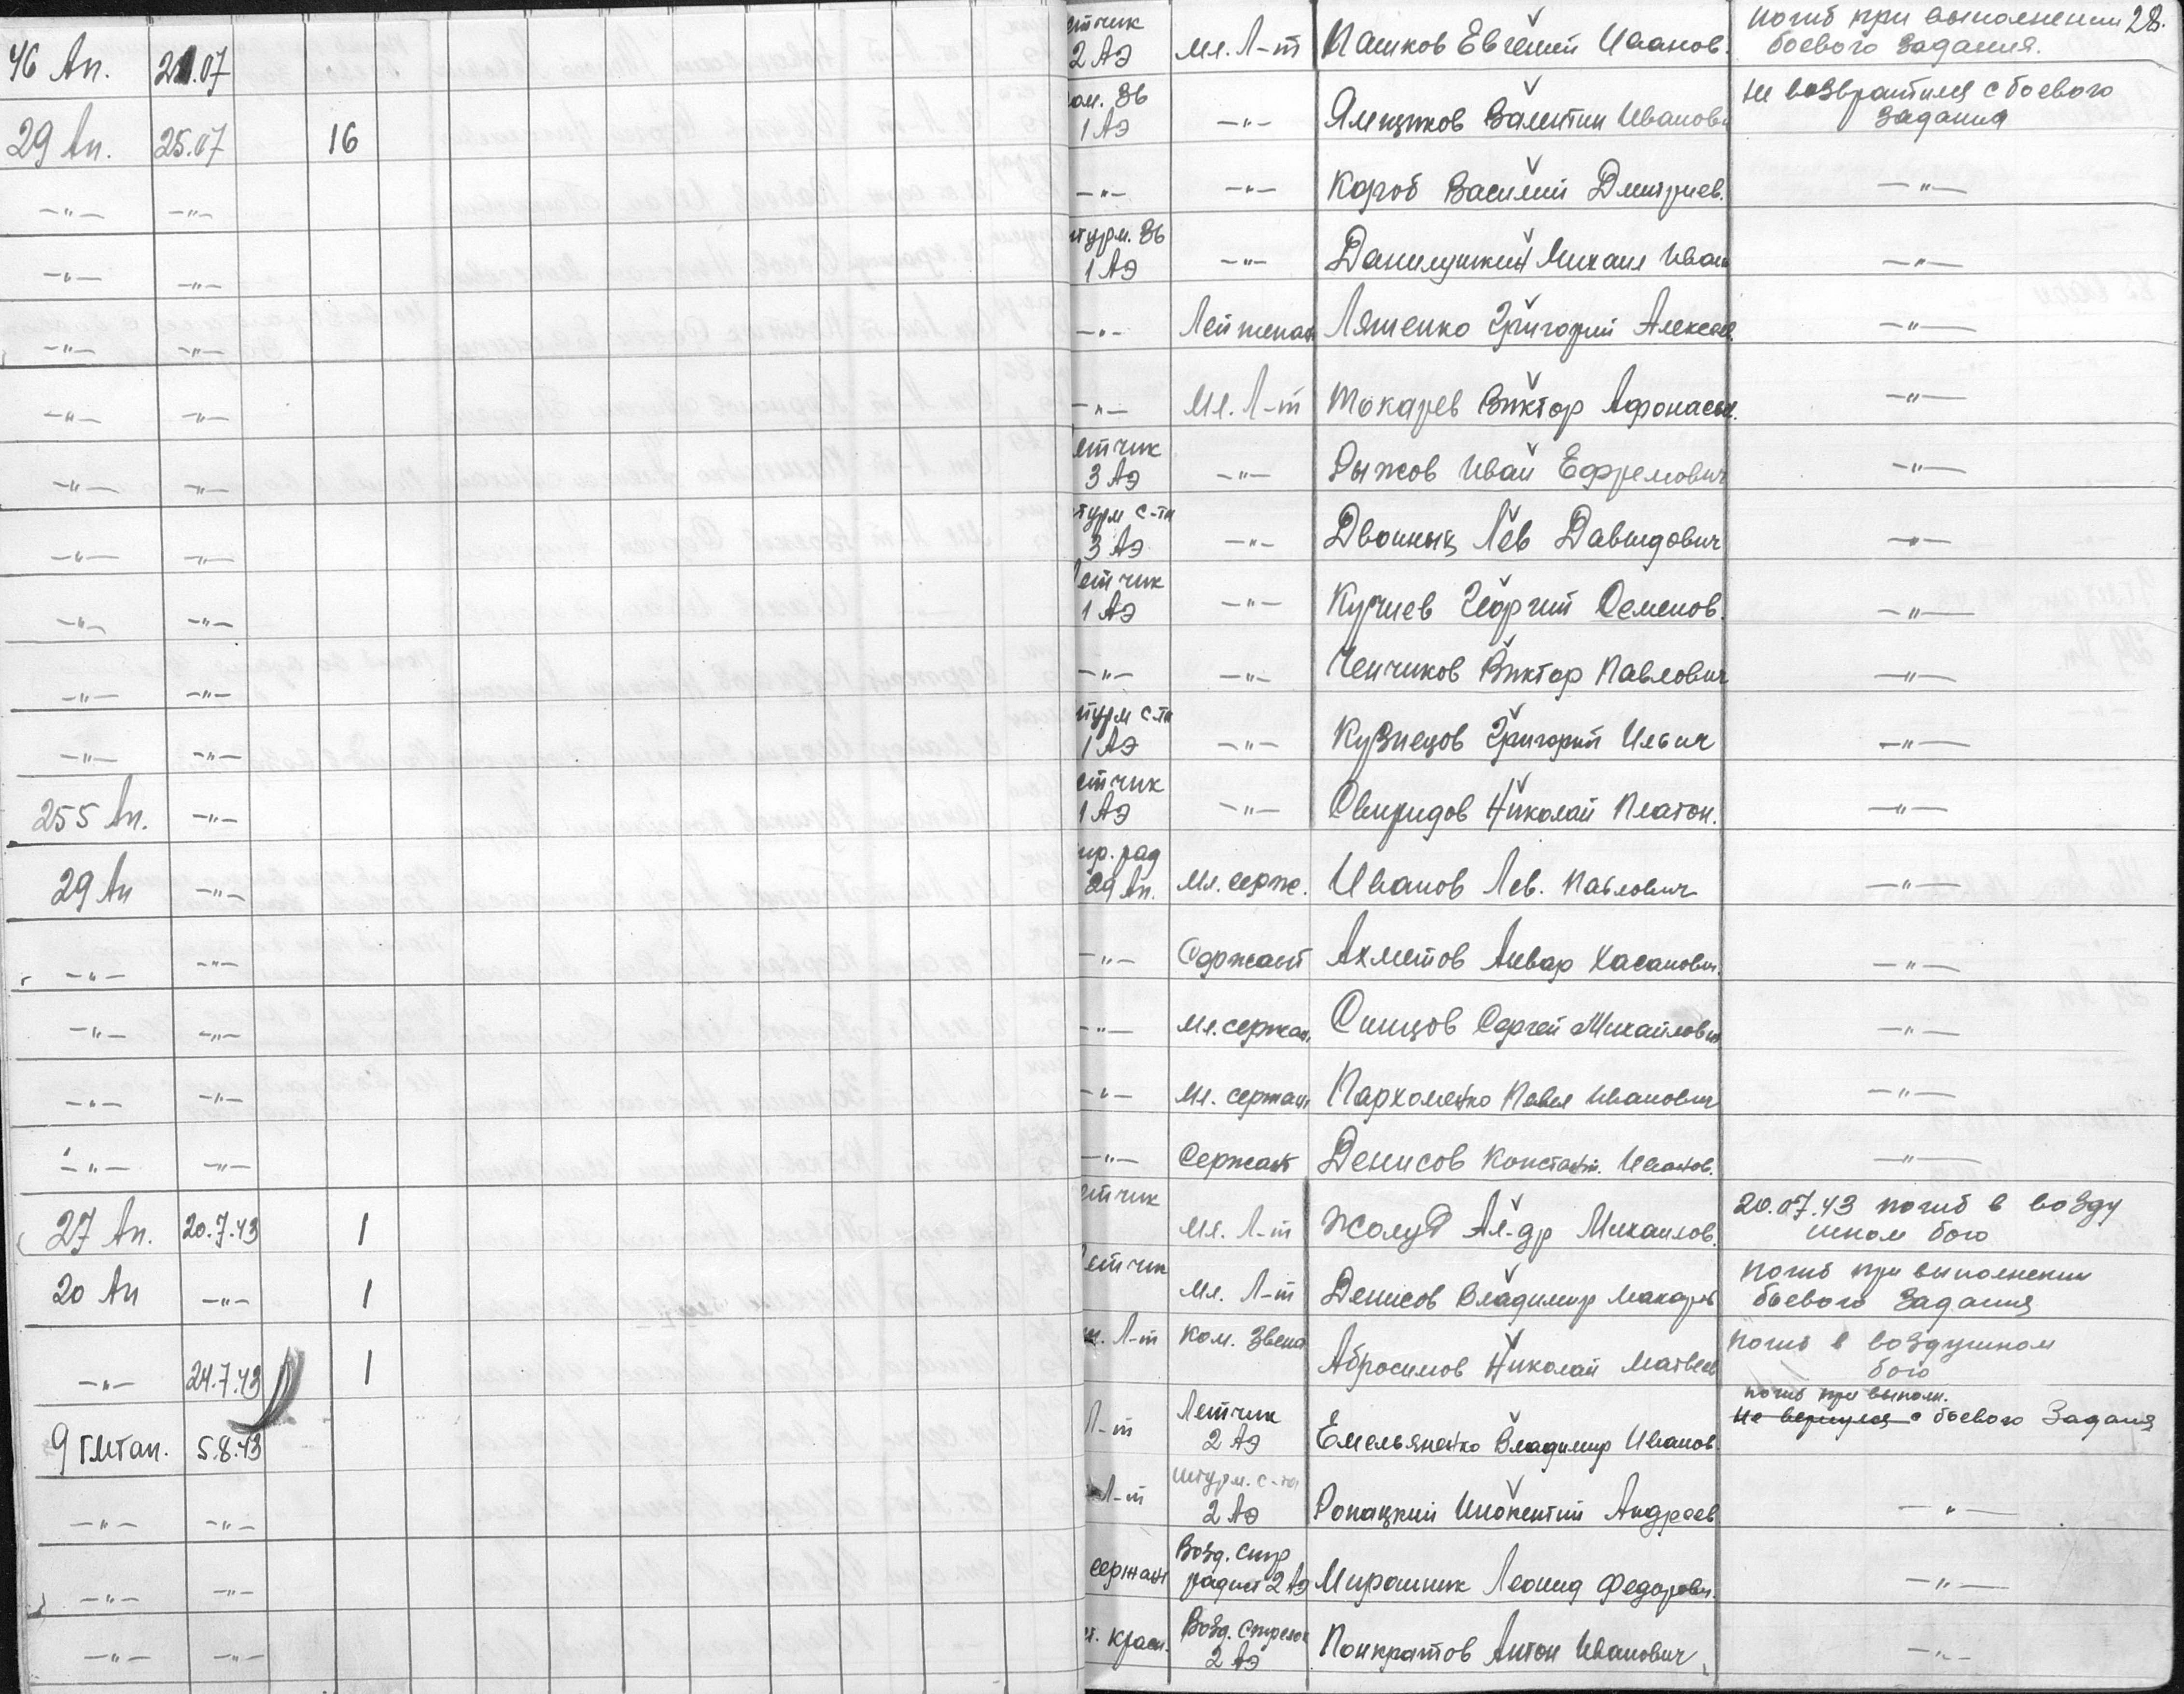 28.
46 Ап. 21.07 етчик 2 АЭ Мл. Л-т Пашков Евгений Иванов. погиб при выполнении
боевого задания.
29 Ап. 25.07 16 ом. Зв 1 АЭ —"— Ямщиков Валентин Иванови не возвратился с боевого
задания
—"— —"— —"— —"— Короб Василий Дмитриев. —"—
—"— —"— турм. Зв 1 АЭ —"— Данилушкин Михаил Иван —"—
—"— —"— —"— Лейтенан Ляшенко Григорий Алексее. —"—
—"— —"— —"— Мл. Л-т Токарев Виктор Афонасьев. —"—
—"— —"— етчик 3 АЭ —"— Рыжов Иван Ефремович —"—
—"— —"— турм с-та 3 АЭ —"— Двоиных Лев Давыдович —"—
—"— —"— етчик 1 АЭ —"— Георгий Семенов. —"—
—"— —"— —"— —"— Ченчиков Виктор Павлович —"—
—"— —"— турм с-та 1 АЭ —"— Кузнецов Григорий Ильич —"—
255 Ап. —"— етчик 1 АЭ —"— Свиридов Николай Платон. —"—
29 Ап —"— р. рад 29 Ап. Мл. серж. Иванов Лев. Павлович —"—
—"— —"— —"— Сержант Ахметов Анвар Хасанович. —"—
—"— —"— —"— Мл. сержан. Синцов Сергей Михайлович —"—
—"— —"— —"— Мл. сержан Пархоменко Павел Иванович —"—
—"— —"— —"— Сержант Денисов Констант. Иванов. —"—
27 Ап. 20.7.43 1 етчик Мл. Л-т Жолуд Ал-др Михаилов. 20.07.43 погиб в возду
шном бою
20 Ап —"— 1 етчик Мл. Л-т Денисов Владимир Макаров погиб при выполнении
боевого задания
—"— 24.7.43 1 Л-т Ком. Звена Абросимов Николай Матвеев погиб в воздушном
бою
погиб при выполн.
9 Гмтап. 5.8.43 Л-т Летчик 2 АЭ Емельяненко Владимир Иванов. Не вернулся с боевого задания
—"— —"— Л-т штурм. с-та 2 АЭ Ропацкий Инокентий Андреев. —"—
—"— —"— сержант Возд. стр радист 2 АЭ Мирошник Леонид Федорович. —"—
—"— —"— т. красн. Возд. стрелок 2 АЭ Понкратов Антон Иванович —"—